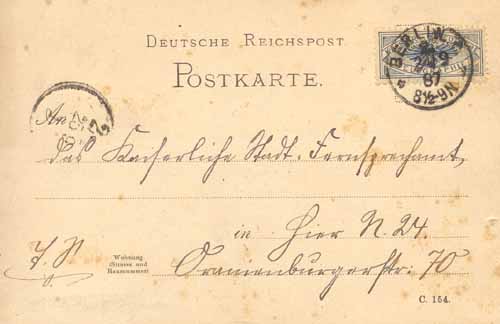 DEUTSCHE REICHSPOST
POSTKARTE.
BERLIN
9
87
8½-9N
An
das Kaiserliche Stadt-Fernsprechamt,
in Hier N. 24
Wohnung
(Strasse und
Hausnummer)
Oranienburgerstr. 70
C. 154.